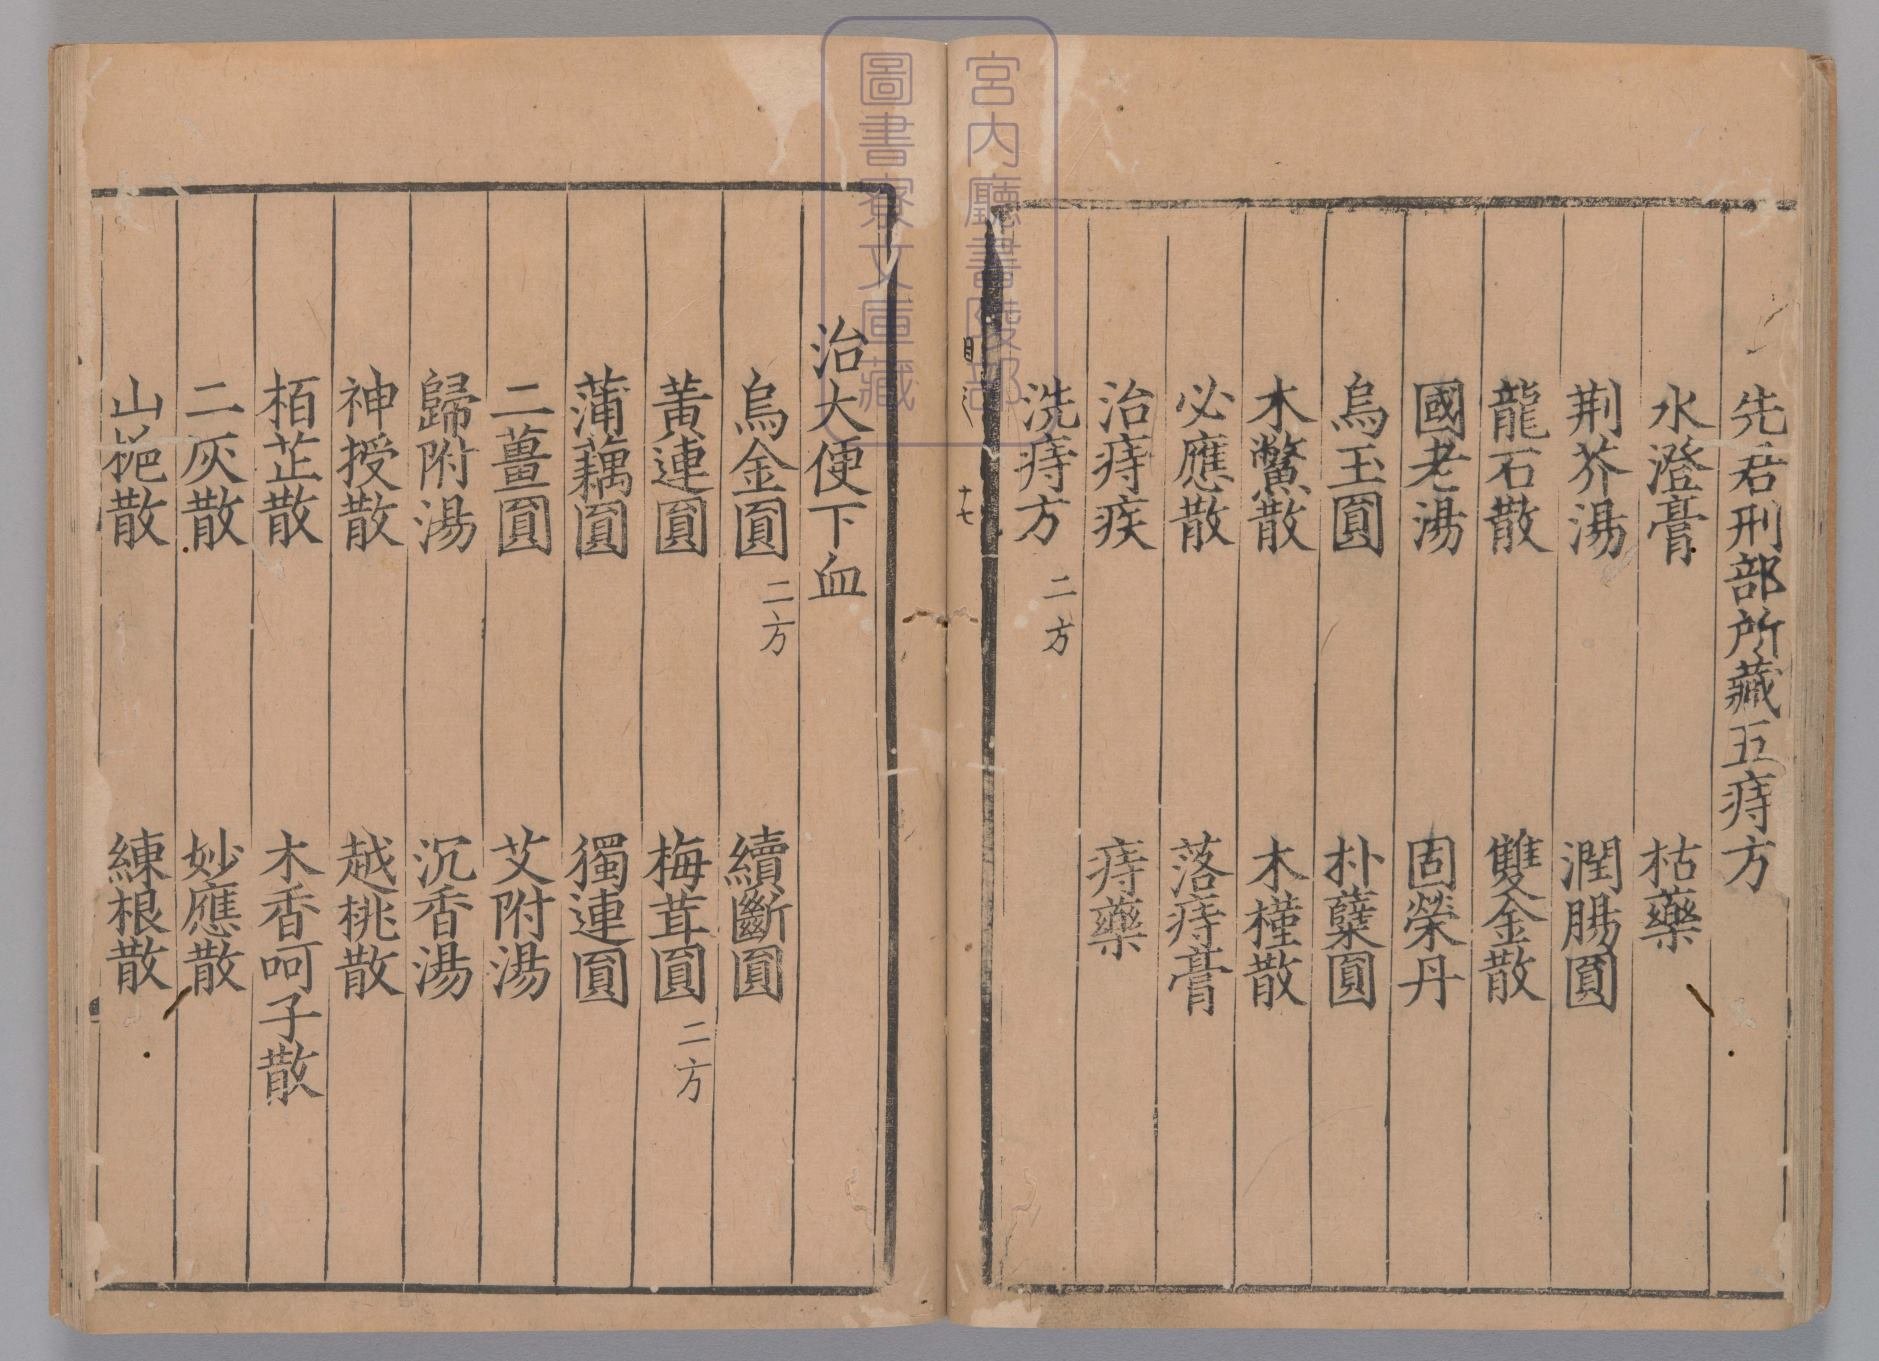 先君刑部所藏五痔方
水澄膏 枯藥
荆芥湯 潤腸圓
龍石散 雙金散
國老湯 固榮丹
烏玉圓 朴蘖圓
木鱉散 木槿散
必應散 落痔膏
治痔疾 痔藥
洗痔方 二方
十七
治大便下血
烏金圓 二方 續斷圓
黄連圓 梅茸圓 二方
蒲藕圓 獨連圓
二薑圓 艾附湯
歸附湯 沉香湯
神授散 越桃散
栢芷散 木香呵子散
二灰散 妙應散
山梔散 練根散
宮内廳書陵部
圖書寮文庫藏